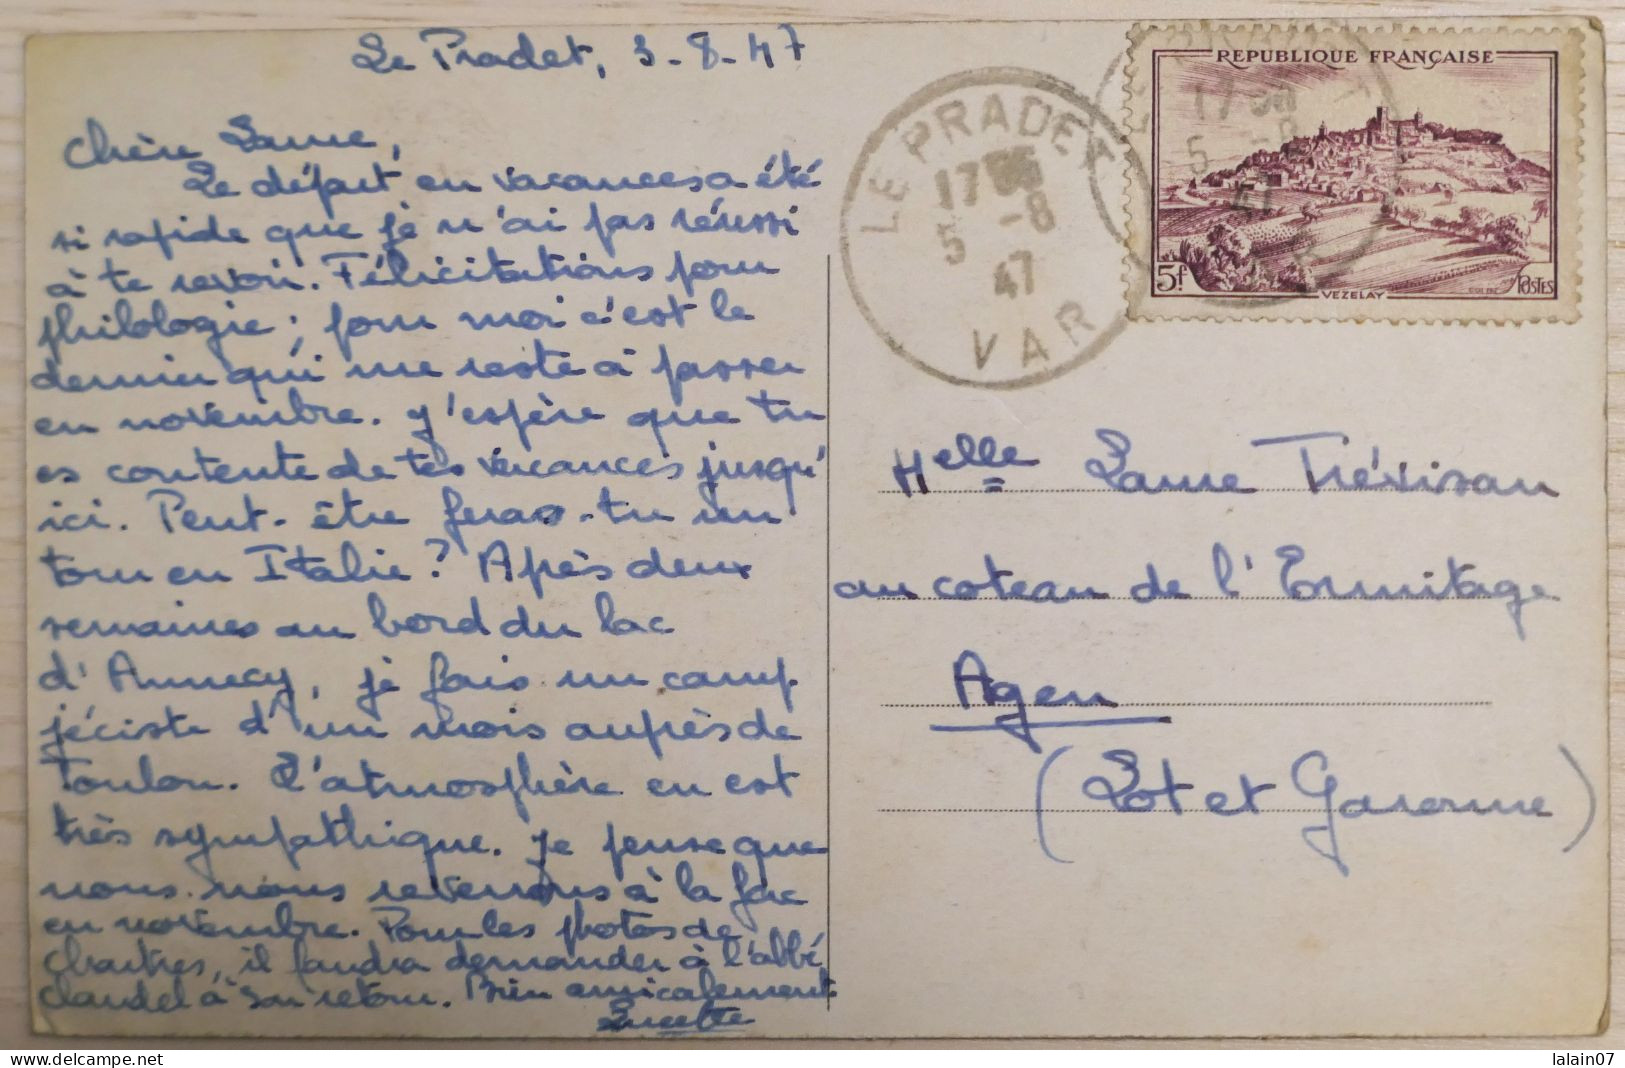 Le Pradet, 3-8-47
Chère Laure,
Le départ en vacances a été
si rapide que je n'ai pas réussi
à te revoir. Félicitations pour
philologie ; pour moi c'est le
dernier qui me reste à passer
en novembre. J'espère que tu
es contente de tes vacances jusqu'
ici. Peut-être feras-tu un
tour en Italie ? Après deux
semaines au bord du lac
d'Annecy, je fais un camp
jéciste d'un mois auprès de
Toulon. L'atmosphère en est
très sympathique. Je pense que
nous nous reverrons à la fac
en novembre. Pour les photos de
Chartres, il faudra demander à l'abbé
Claudel à son retour. Bien amicalement
Lucette
REPUBLIQUE FRANÇAISE
5f
VEZELAY
POSTES
LE PRADET
17
5 -8
47
VAR
17
5 -8
47
Melle Laure Trévisan
au coteau de l'Ermitage
Agen
(Lot et Garonne)
lalain07